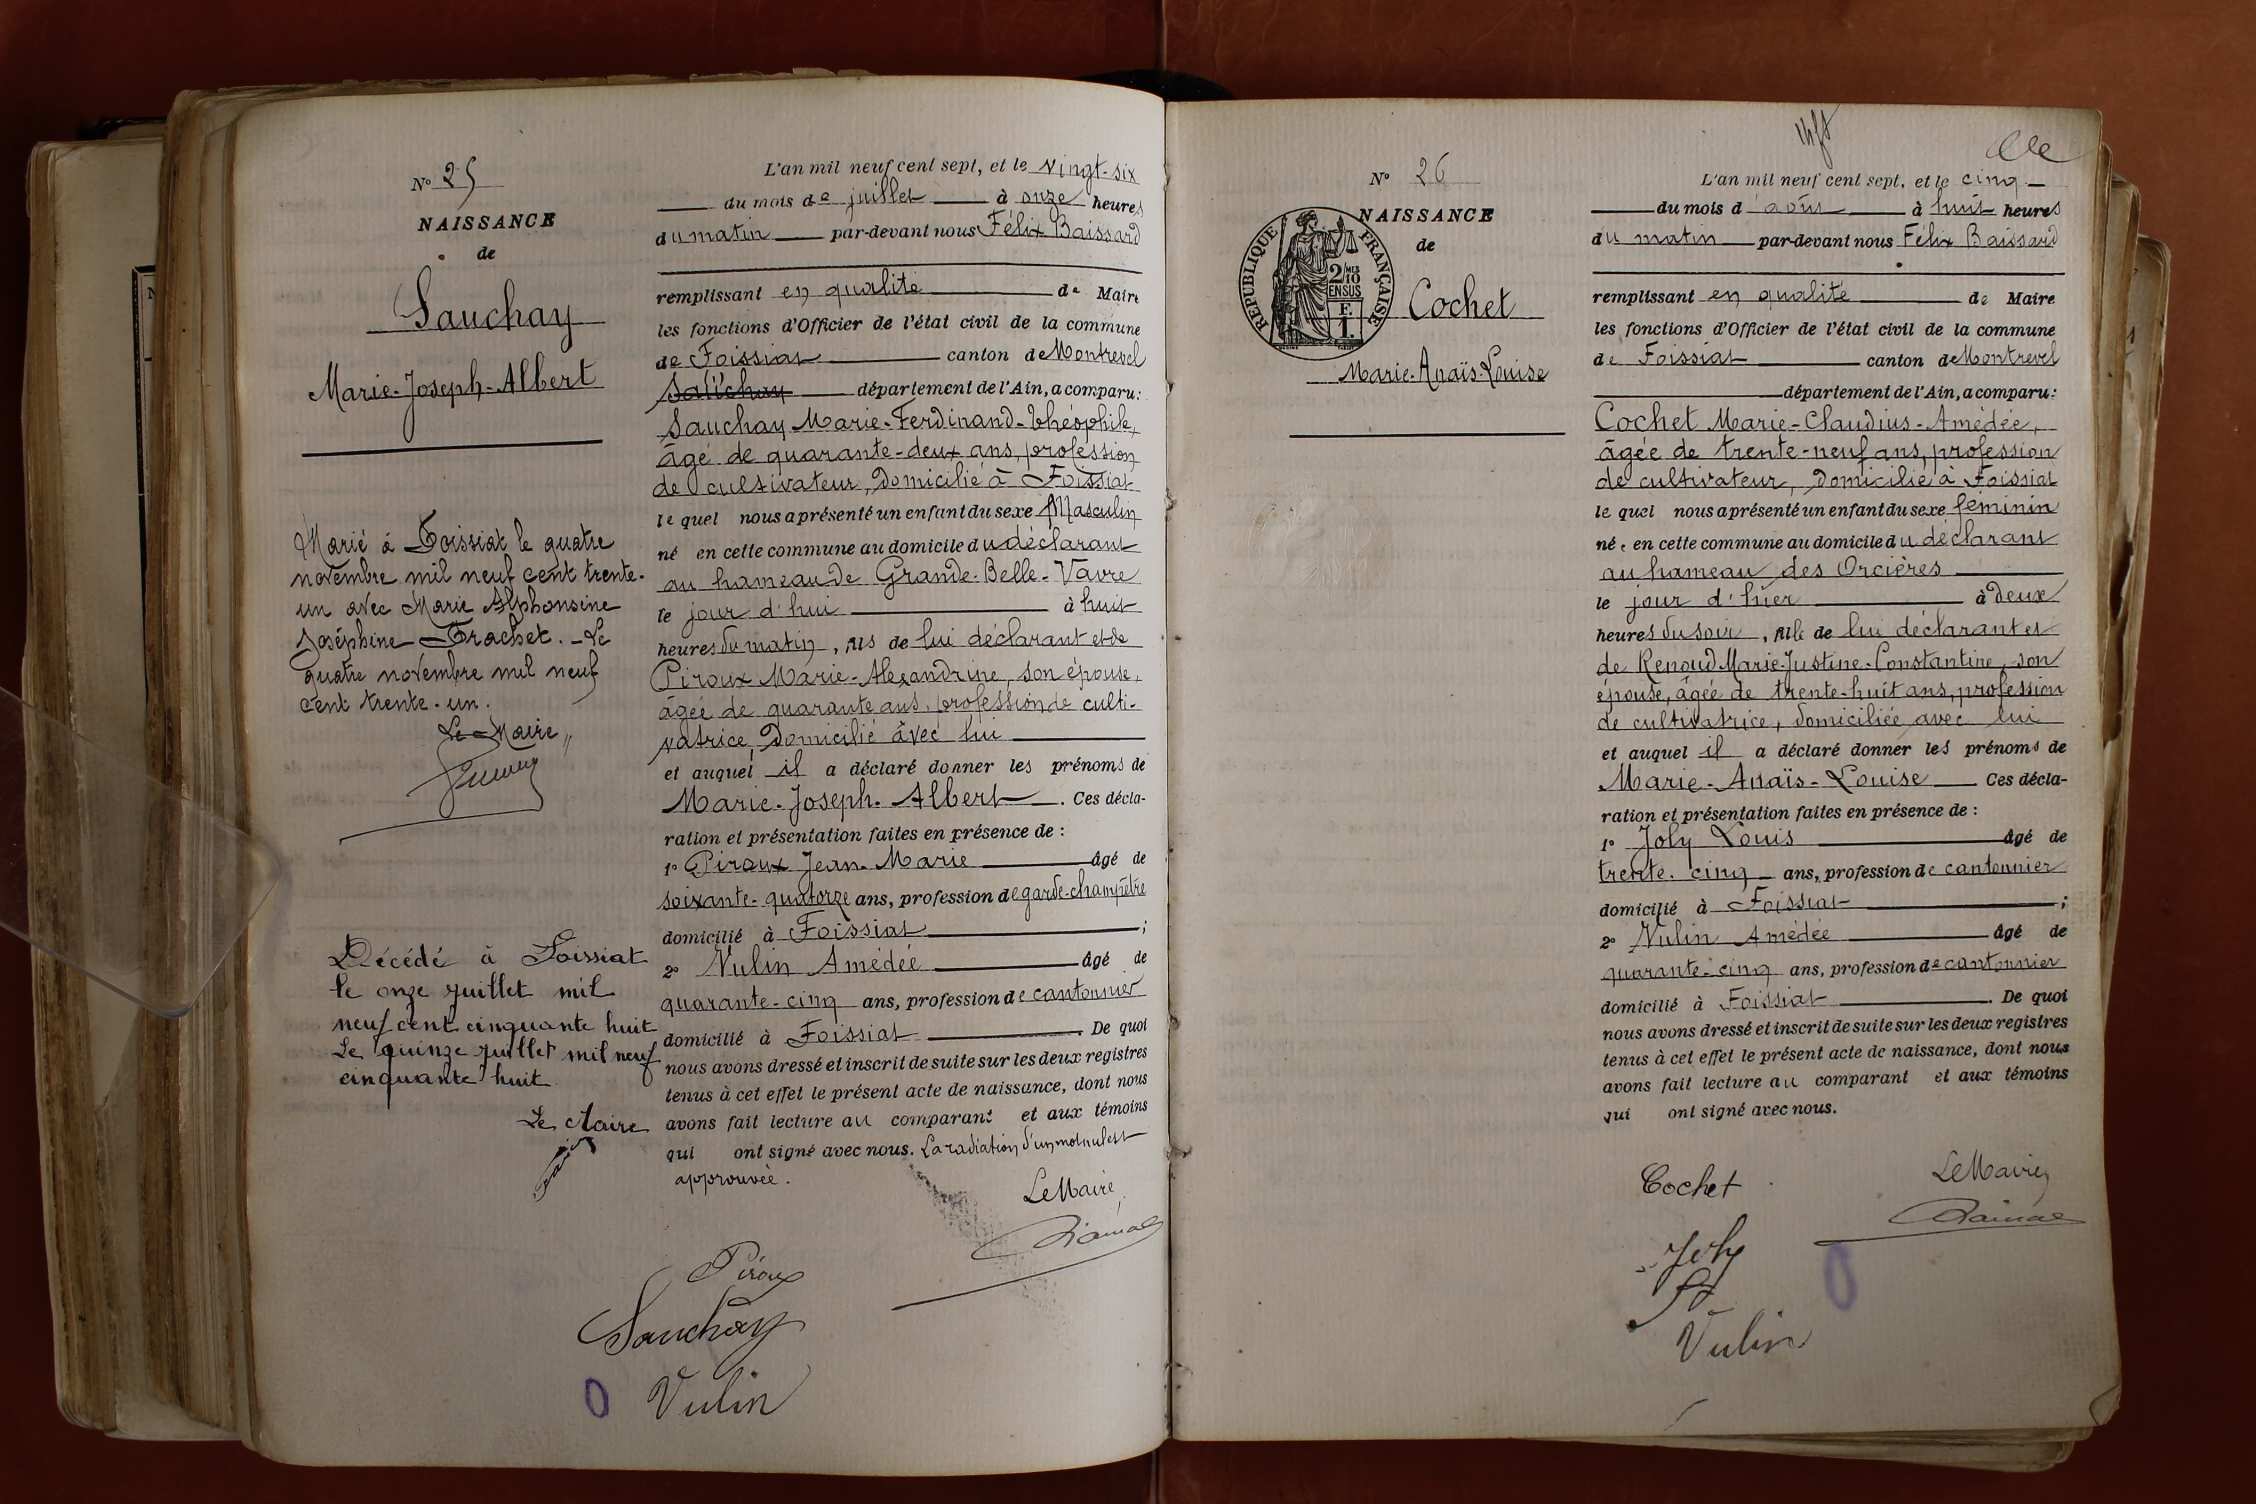 N° 25
NAISSANCE
de
Sauchay
Marie-Joseph-Albert
Marié à Foissiat le quatre
novembre mil neuf cent trente-
un avec Marie Alphonsine
Joséphine Trachet. - Le
quatre novembre mil neuf
cent trente-un.
Le Maire,
Décédé à Foissiat
le onze juillet mil
neuf cent cinquante huit
Le quinze juillet mil neuf
cinquante huit
Le Maire
L'an mil neuf cent sept, et le vingt-six
du mois de juillet à onze heures
du matin par-devant nous Félix Baissard
remplissant en qualité de Maire
les fonctions d'Officier de l'état civil de la commune
de Foissiat canton de Montrevel
Sauchay département de l'Ain, a comparu:
Sauchay Marie-Ferdinand-Théophile,
âgé de quarante-deux ans, profession
de cultivateur, domicilié à Foissiat
le quel nous a présenté un enfant du sexe Masculin
né en cette commune au domicile du déclarant
au hameau de Grande-Belle-Vavre
le jour d'hui à huit
heures du matin, fils de lui déclarant et de
Piroux Marie-Alexandrine, son épouse,
âgée de quarante ans, profession de culti-
vatrice, domicilié avec lui
et auquel il a déclaré donner les prénoms de
Marie-Joseph-Albert. Ces décla-
ration et présentation faites en présence de :
1° Piroux Jean-Marie âgé de
soixante-quatorze ans, profession de garde-champêtre
domicilié à Foissiat ;
2° Vulin Amédée âgé de
quarante-cinq ans, profession de cantonnier
domicilié à Foissiat. De quoi
nous avons dressé et inscrit de suite sur les deux registres
tenus à cet effet le présent acte de naissance, dont nous
avons fait lecture au comparant et aux témoins
qui ont signé avec nous. La radiation d'un mot nul est
approuvée.
Le Maire,
Piroux
Sauchay
Vulin
N° 26
NAISSANCE
de
RÉPUBLIQUE FRANÇAISE
2/10 EN SUS
1 F.
Cochet
Marie-Anaïs-Louise
L'an mil neuf cent sept, et le cinq
du mois d'août à huit heures
du matin par-devant nous Félix Baissard
remplissant en qualité de Maire
les fonctions d'Officier de l'état civil de la commune
de Foissiat canton de Montrevel
département de l'Ain, a comparu:
Cochet Marie-Claudius-Amédée,
âgée de trente-neuf ans, profession
de cultivateur, domicilié à Foissiat
le quel nous a présenté un enfant du sexe féminin
née en cette commune au domicile du déclarant
au hameau des Orcières
le jour d'hier à deux
heures du soir, fille de lui déclarant et
de Renoud Marie-Justine-Constantine, son
épouse, âgée de trente-huit ans, profession
de cultivatrice, domiciliée avec lui
et auquel il a déclaré donner les prénoms de
Marie-Anaïs-Louise Ces décla-
ration et présentation faites en présence de :
1° Joly Louis âgé de
trente-cinq ans, profession de cantonnier
domicilié à Foissiat ;
2° Vulin Amédée âgé de
quarante-cinq ans, profession de cantonnier
domicilié à Foissiat. De quoi
nous avons dressé et inscrit de suite sur les deux registres
tenus à cet effet le présent acte de naissance, dont nous
avons fait lecture au comparant et aux témoins
qui ont signé avec nous.
Cochet
Le Maire,
Joly
Vulin